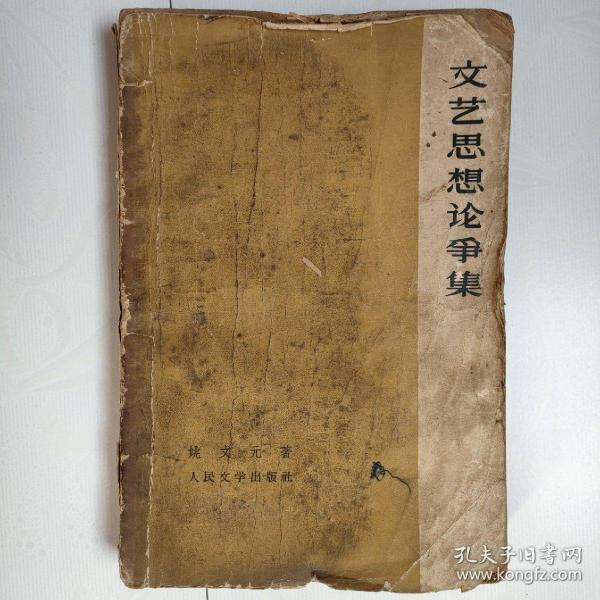 文艺思想论爭集
姚文元著
人民文学出版社
孔夫子旧書网
www.kongfz.com